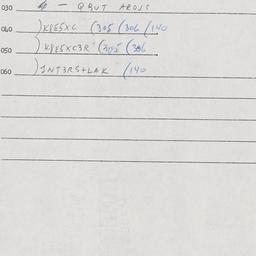 030 — QBUT AROJS
040 )KPE5XC (305 (306 /140
050 )KPE5XC3R (305 (306
060 )INT3RS+LAK (140